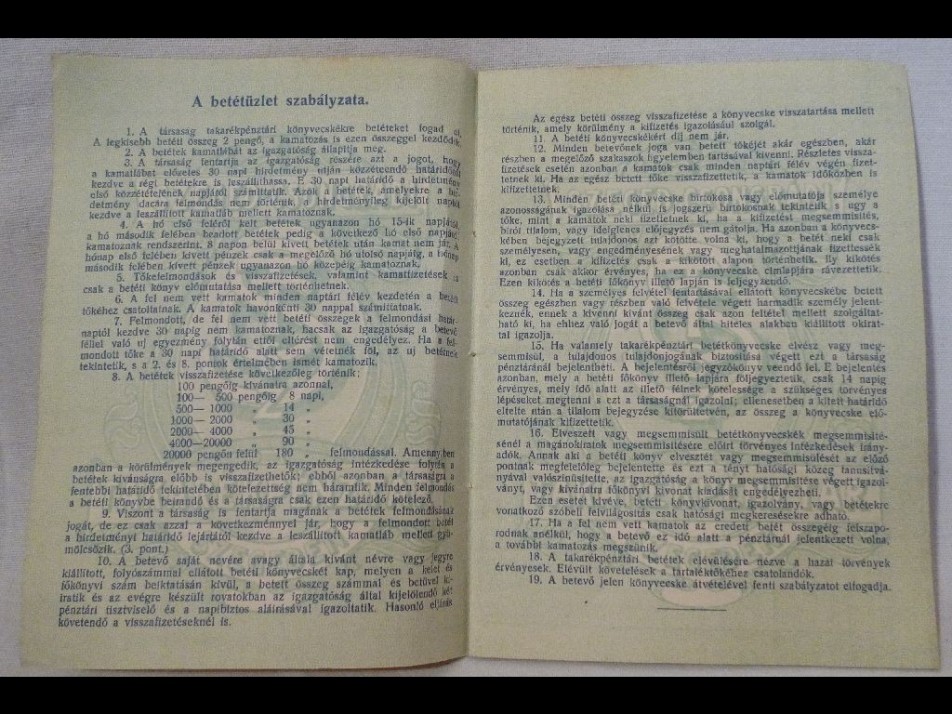 A betétüzlet szabályzata.
1. A társaság takarékpénztári könyvecskékre betéteket fogad el.
A legkisebb betéti összeg 2 pengő, a kamatozás is ezen összeggel kezdődik.
2. A betétek kamatlábát az igazgatóság állapítja meg.
3. A társaság fentartja az igazgatóság részére azt a jogot, hogy
a kamatlábat előzetes 30 napi hirdetmény útján közzéteendő határidőtől
kezdve a régi betétekre is leszállíthassa. E 30 napi határidő a hirdetmény
első közzétételének napjától számíttatik. Azok a betétek, amelyekre a hir-
detmény dacára felmondás nem történik, a hirdetményileg kijelölt naptól
kezdve a leszállított kamatláb mellett kamatoznak.
4. A hó első felétől kelt betétek ugyanazon hó 15-ik napjától,
a hó második felében beadott betétek pedig a következő hó első napjától
kamatoznak rendszerint. 8 napon belül kivett betétek után kamat nem jár. A
hónap első felében kivett pénzek csak a megelőző hó utolsó napjáig, a hónap
második felében kivett pénzek ugyanazon hó közepéig kamatoznak.
5. Tőkefelmondások és visszafizetések, valamint kamatfizetések is
csak a betéti könyv előmutatása mellett történhetnek.
6. A fel nem vett kamatok minden naptári félév kezdetén a betéti
tőkéhez csatoltatnak. A kamatok havonkénti 30 nappal számíttatnak.
7. Felmondott, de fel nem vett betéti összegek a felmondási határ-
naptól kezdve 30 napig nem kamatoznak, hacsak az igazgatóság a betevő
féllel való uj egyezmény folytán ettől eltérést nem engedélyez. Ha a fel-
mondott tőke a 30 napi határidő alatt sem vétetnék föl, az uj betétnek
tekintetik, s a 2. és 8. pontok értelmében ismét kamatozik.
8. A betétek visszafizetése következőleg történik;
100 pengőig kívánatra azonnal,
100— 500 pengőig 8 napi,
500— 1000 „ 14 „
1000— 2000 „ 30 „
2000— 4000 „ 45 „
4000—20000 „ 90 „
20000 pengőn felül 180 „ felmondással. Amennyiben
azonban a körülmények megengedik, az igazgatóság intézkedése folytán a
betétek kívánságra előbb is visszafizethetők; ebből azonban a társaságra a
fentebbi határidő tekintetében kötelezettség nem háramlik. Minden felmondás
a betéti könyvbe beirandó és a társaságra csak ezen határidő kötelező.
9. Viszont a társaság is fentartja magának a betétek felmondásának
jogát, de ez csak azzal a következménnyel jár, hogy a felmondott betét
a hirdetményi határidő lejártától kezdve a leszállított kamatláb mellett gyü-
mölcsözik. (3. pont.)
10. A betevő saját nevére avagy általa kívánt névre vagy jegyre
kiállított, folyószámmal ellátott betéti könyvecskét kap, melyen a hetét és
főkönyvi szám beiktatásán kívül, a betett összeg számmal és betűvel ki-
iratik és az evégre készült rovatokban az igazgatóság által kijelölendő két
pénztári tisztviselő és a napibiztos aláirásával igazoltatik. Hasonló eljárás
követendő a visszafizetéseknél is.
Az egész betéti összeg visszafizetése a könyvecske visszatartása mellett
történik, amely körülmény a kifizetés igazolásául szolgál.
11. A betéti könyvecskékért díj nem jár.
12. Minden betevőnek joga van betett tőkéjét akár egészben, akár
részben a megelőző szakaszok figyelemben tartásával kivenni. Részletes vissza-
fizetések esetén azonban a kamatok csak minden naptári félév végén fizet-
tetnek ki. Ha az egész betett tőke visszafizettetik, a kamatok időközben is
kifizettetnek.
13. Minden betéti könyvecske birtokosa vagy előmutatója személye
azonosságának igazolása nélkül is jogszerü birtokosnak tekintetik s ugy a
tőke, mint a kamatok neki fizettetnek ki, ha a kifizetést megsemmisítés,
birói tilalom, vagy ideiglenes előjegyzés nem gátolja. Ha azonban a könyvecs-
kében bejegyzett tulajdonos azt kötötte volna ki, hogy a betét neki csak
személyesen, vagy engedményesének vagy meghatalmazottjának fizettessék
ki, ez esetben a kifizetés csak a kikötött alapon történhetik. Ily kikötés
azonban csak akkor érvényes, ha ez a könyvecske címlapjára rávezettetik.
Ezen kikötés a betéti főkönyv illető lapján is feljegyzendő.
14. Ha a személyes felvétel fentartásával ellátott könyvecskébe betett
összeg egészben vagy részben való felvétele végett harmadik személy jelent-
keznék, ennek a kivenni kívánt összeg csak azon feltétel mellett szolgáltat-
ható ki, ha ehhez való jogát a betevő által hiteles alakban kiállított okirat-
tal igazolja.
15. Ha valamely takarékpénztári betétkönyvecske elvész vagy meg-
semmisül, a tulajdonos tulajdonjogának biztosítása végett ezt a társaság
pénztáránál bejelentheti. A bejelentésről jegyzőkönyv veendő fel. E bejelentés
azonban, mely a betéti főkönyv illető lapjára följegyeztetik, csak 14 napig
érvényes, mely idő alatt az illető félnek kötelessége a szükséges törvényes
lépéseket megtenni s ezt a társaságnál igazolni; ellenesetben a kitett határidő
eltelte után a tilalom bejegyzése kitörültetvén, az összeg a könyvecske elő-
mutatójának kifizettetik.
16. Elveszett vagy megsemmisült betétkönyvecskék megsemmisíté-
sénél a magánokiratok megsemmisítésére előírt törvényes intézkedések irány-
adók. Annak aki a betéti könyv elvesztét vagy megsemmisülését az előző
pontnak megfelelőleg bejelentette és ezt a tényt hatósági közeg tanusítvá-
nyával valószinüsítette, az igazgatóság a könyv megsemmisítése végett igazol-
ványt, vagy kívánatra főkönyvi kivonat kiadását engedélyezheti.
Ezen esetet kivéve, betéti könyvkivonat, igazolvány, vagy betétekre
vonatkozó szóbeli felvilágosítás csak hatósági megkeresésekre adható.
17. Ha a fel nem vett kamatok az eredeti betét összegéig felszapo-
rodnak anélkül, hogy a betevő ez idő alatt a pénztárnál jelentkezett volna,
a további kamatozás megszünik.
18. A takarékpénztári betétek elévülésére nézve a hazai törvények
érvényesek. Elévült követelések a tartaléktőkéhez csatolandók.
19. A betevő jelen könyvecske átvételével fenti szabályzatot elfogadja.